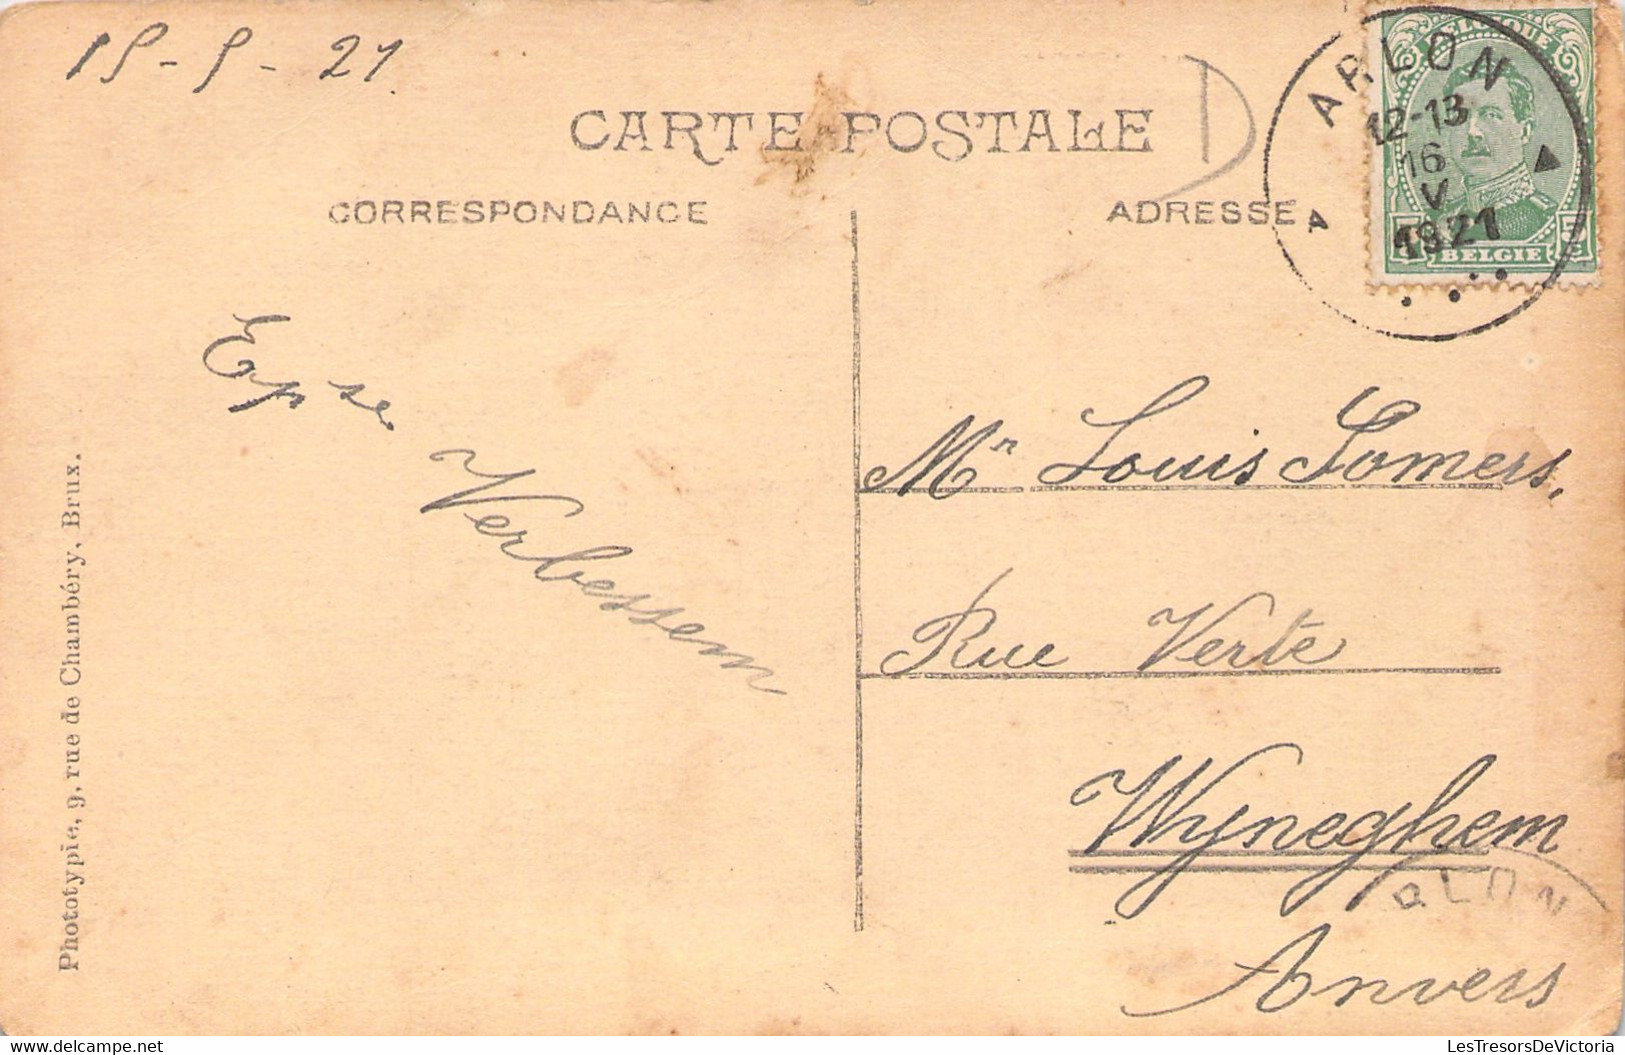 15-5-21.
CARTE POSTALE
CORRESPONDANCE
ADRESSE
BELGIQUE
BELGIË
5 5
ARLON
12-13
16
V
1921
se Verbessem
Mr Louis Somers,
Rue Verte
Wyneghem
Anvers
RLON
Phototypie, 9, rue de Chambéry, Brux.
LesTresorsDeVictoria
LesTresorsDeVictoria.com